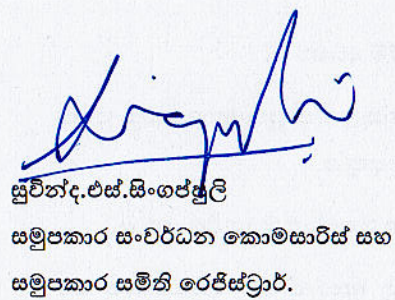 සුවින්ද.එස්.සිංගප්පුලි
සමුපකාර සංවර්ධන කොමසාරිස් සහ
සමුපකාර සමිති රෙජිස්ට්‍රාර්.